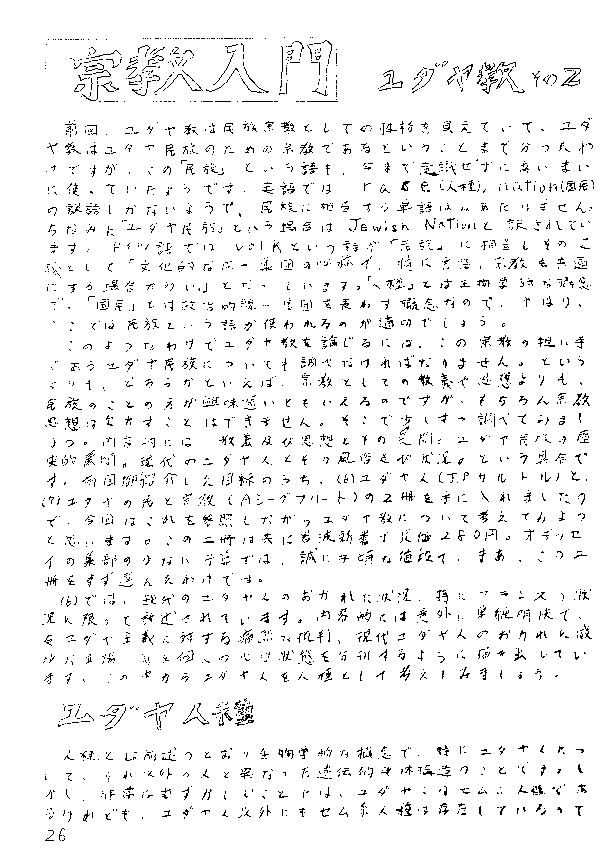 宗教入門 ユダヤ教 その2
前回、ユダヤ教は民族宗教としての性格を見ていて、ユダ
ヤ教はユダヤ民族のための宗教であるということまで分ったわ
けですが、この「民族」という語も、今まで意識せずにあいまい
に使っていたようです。英語では (人種), nation(国民)
の訳語しかないようで、民族に相当する単語はみあたりません。
ちなみに「ユダヤ民族」という場合は Jewish Nation と訳されてい
ます。ドイツ語では Volk という語が「民族」に相当しそのこ
で、「国民」とは政治的統一集団を表わす概念なので、やはり、
ここでは民族という語が使われるのが適切でしょう。
このようなわけでユダヤ教を論じるには、この宗教の担い手
であるユダヤ民族についても調べなければなりません。という
よりも、どちらかといえば、宗教としての教義や思想よりも、
民族のことの方が興味深いともいえるのですが、もちろん宗教
思想は欠かすことはできません。そこで少しずつ調べてみまし
ょう。内容的には 教義及び思想とその 、ユダヤ民族の歴
史的展開。現代のユダヤ人とその風俗及び状況。という具合で
す。前回紹介した図書のうち、(6)ユダヤ人(J.P.サルトル)と、
(7)ユダヤの民と宗教(A.シーグフリート)の2冊を手に入れましたの
で、今回はこれを参照しながらユダヤ教について考えてみよう
と思います。この二冊は共に岩波新書で定価280円。
では、誠に手頃な値段で、まあ、この二
冊をまず選んだわけです。
(6)では、現代のユダヤ人のおかれた状況、特にフランスの状
況に限って叙述されています。内容的には意外に単純明快で、
反ユダヤ主義に対する痛烈な批判、現代ユダヤ人のおかれた
立場 心理状態を分析するように描き出してい
ます。この中からユダヤ人を人種として考えてみましょう。
ユダヤ人種
人種とは前述のとおり生物学的な概念で、特にユダヤ人だっ
て、それ以外の人と異なった遺伝的身体構造のことです。し
かし、非常にむずかしいことには、ユダヤ人はセム人種であ
るけれども、ユダヤ人以外にもセム系人種は存在しているので
26